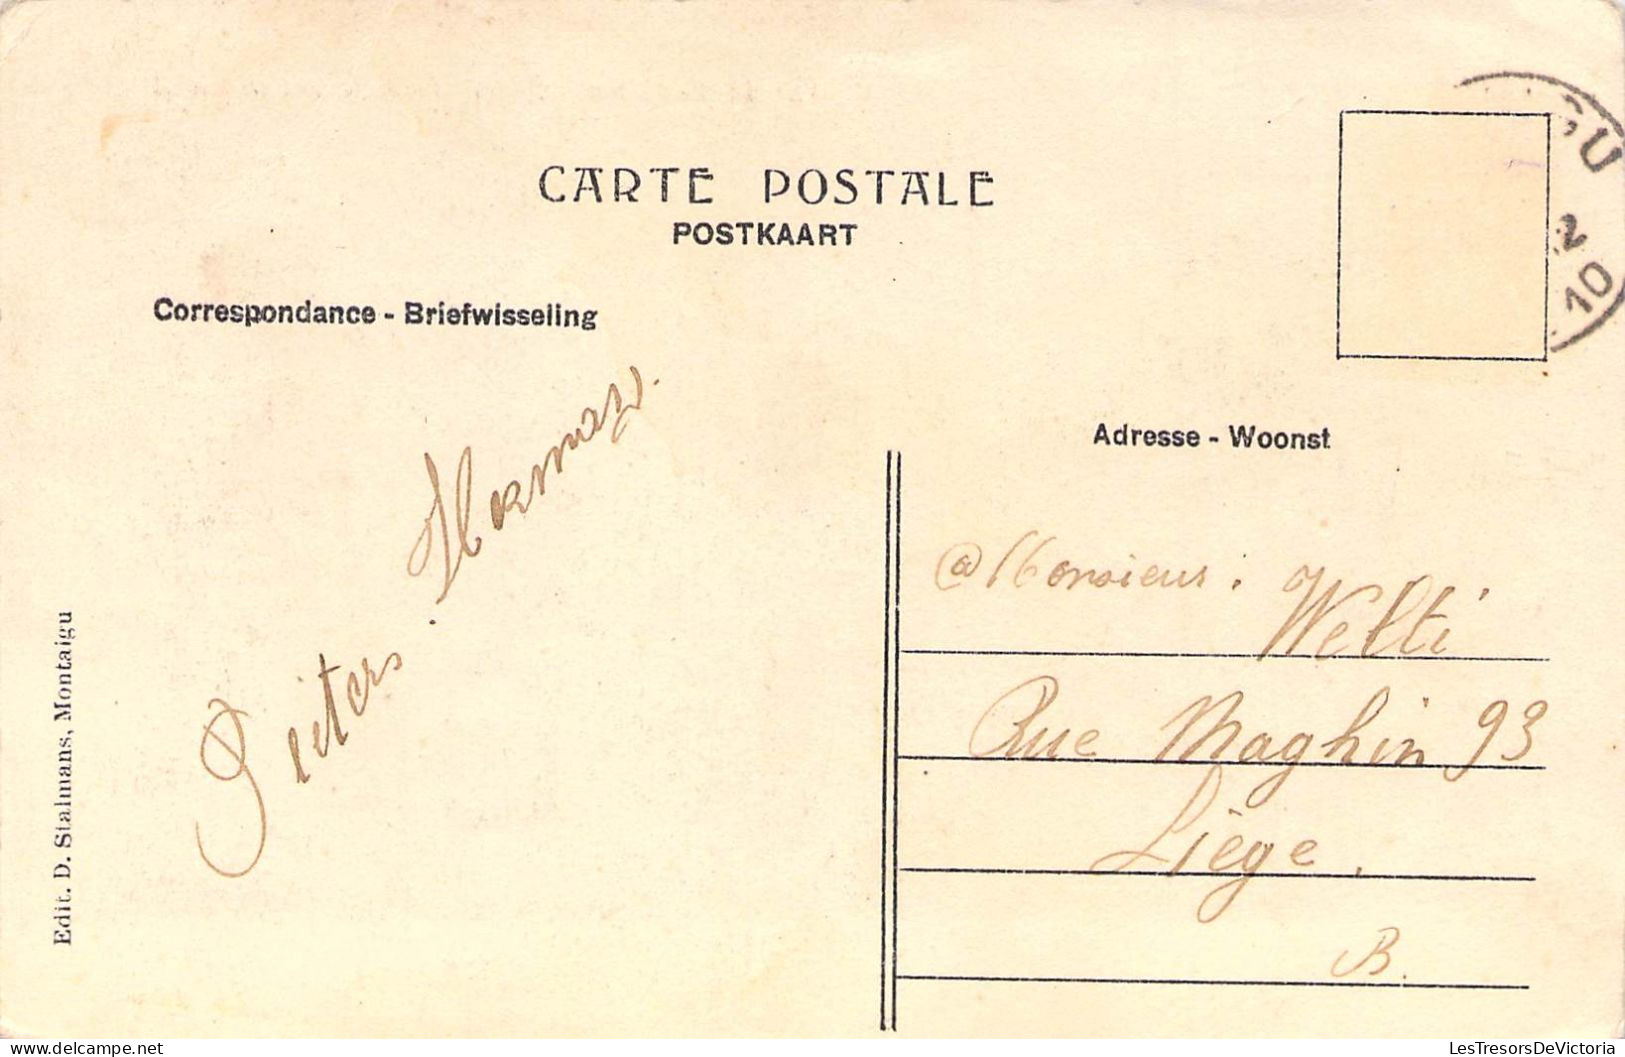 CARTE POSTALE
POSTKAART
Correspondance - Briefwisseling
GU
2
10
Adresse - Woonst
@ Monsieur. Welti
Rue Maghin 93
Liège.
B.
Edit. D. Stalmans, Montaigu
LesTresorsDeVictoria